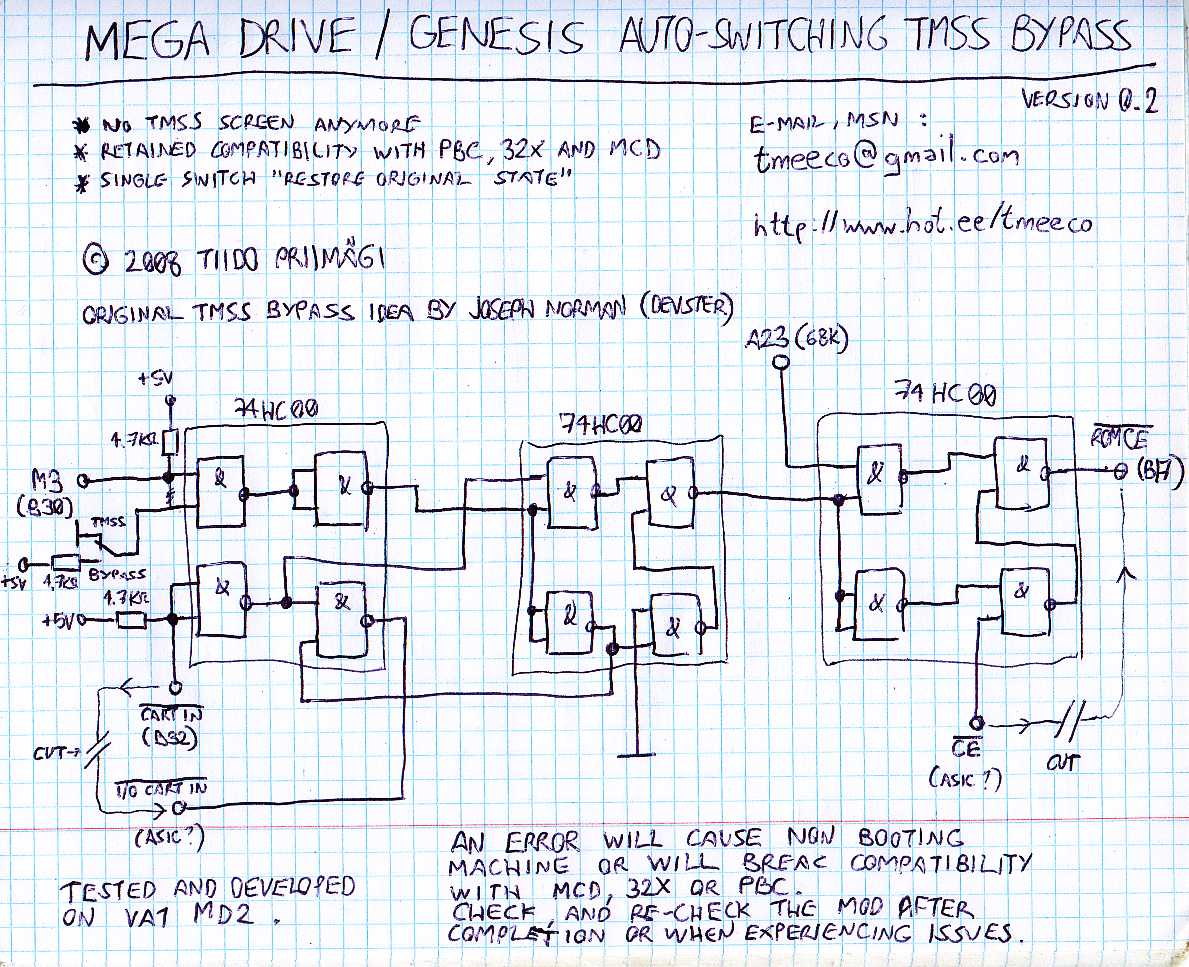 MEGA DRIVE / GENESIS AUTO-SWITCHING TMSS BYPASS
VERSION 0.2
* NO TMSS SCREEN ANYMORE
* RETAINED COMPATIBILITY WITH PBC, 32X AND MCD
* SINGLE SWITCH "RESTORE ORIGINAL STATE"
E-MAIL, MSN :
tmeeco@gmail.com
http://www.hot.ee/tmeeco
© 2008 TIIDO PRIIMÄGI
ORIGINAL TMSS BYPASS IDEA BY JOSEPH NORMAN (DEVSTER)
A23 (68K)
+5V
74HC00
74HC00
74HC00
4.7KΩ
M3
(B30)
&
&
&
&
&
&
ROMCE
(B17)
TMSS
+5V
4.7KΩ
BYPASS
4.7KΩ
+5V
&
&
&
&
&
&
CART IN
(B32)
CUT→
I/O CART IN
(ASIC?)
CE
(ASIC?)
CUT
AN ERROR WILL CAUSE NON BOOTING
MACHINE OR WILL BREAK COMPATIBILITY
WITH MCD, 32X OR PBC.
CHECK, AND RE-CHECK THE MOD AFTER
COMPLETION OR WHEN EXPERIENCING ISSUES.
TESTED AND DEVELOPED
ON VA1 MD2.